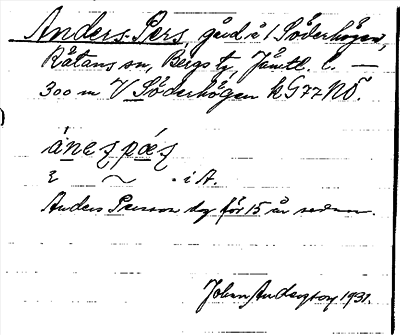 Anders-Pers, gård i 1 Söderhögen,
Rätans sn, Bergs tg, Jämtl. l. —
300 m V Söderhögen k G77 NÖ.
ánez pǽz
i A
Anders Persson dog för 15 år sedan.
Johan Anderson 1931.